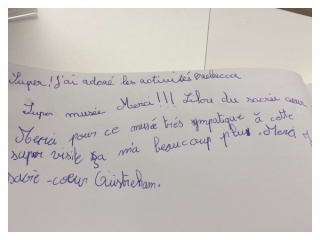 Super! J'ai adoré les activités rebecca
Super musée Merci!!! Lilou du sacrée coeur
Merci pour ce musée très sympatique à cette
super visite ça m'a beaucoup plus. Merci
sacré-coeur Ouistreham.